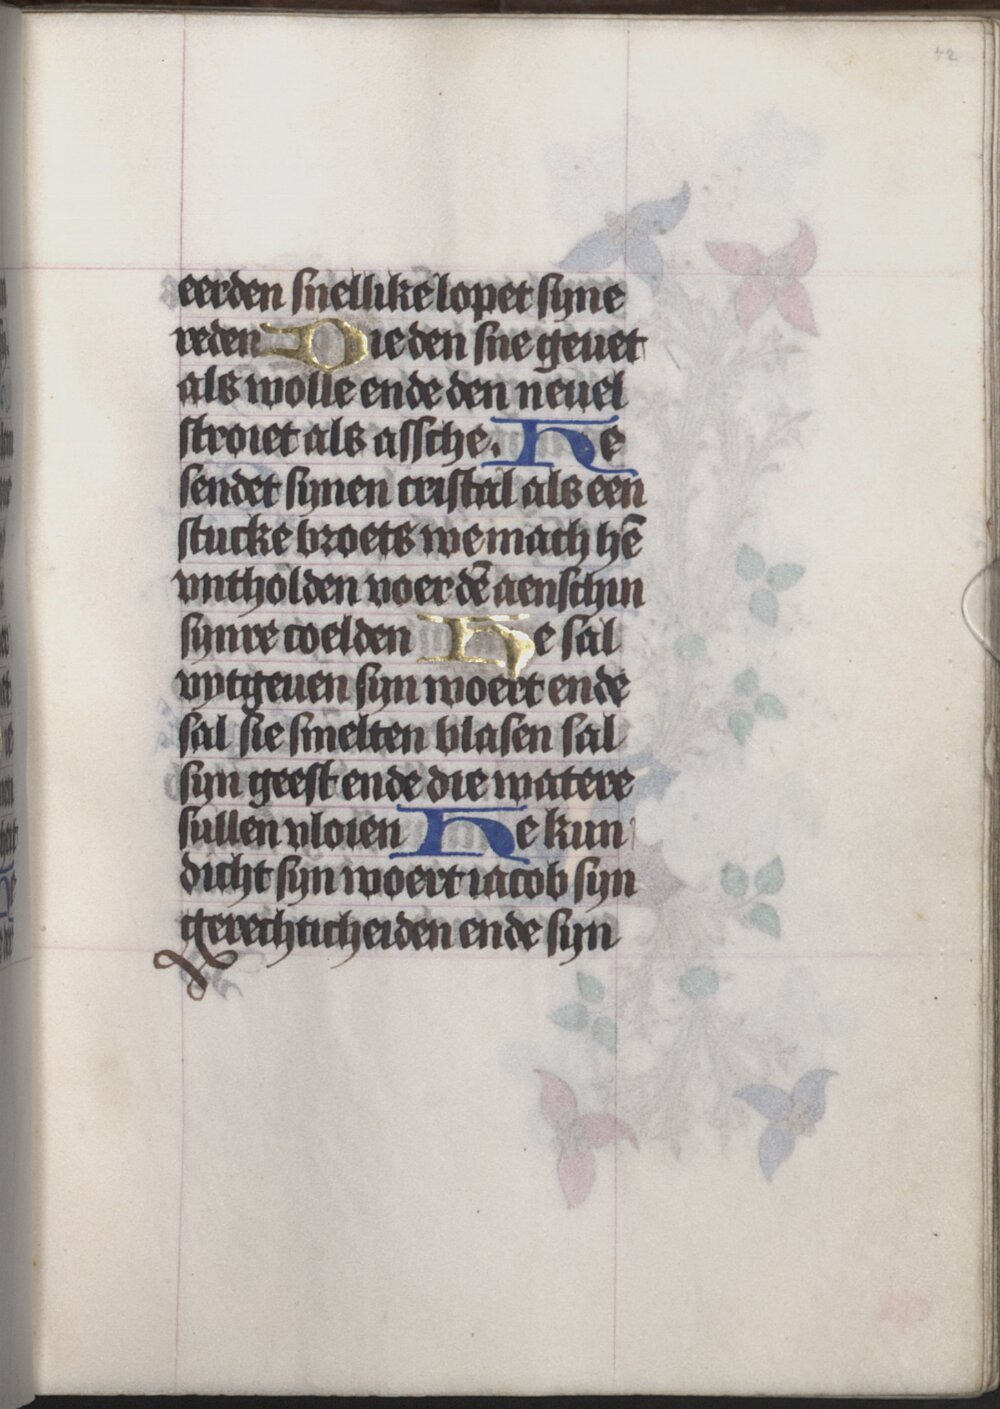 42
eerden snellike lopet syne
reden Die den sne geuet
als wolle ende den neuel
stroiet als assche. He
sendet synen cristal als een
stucke broets we mach hē
vntholden voer dē aenschin
synre coelden He sal
vytgeuen syn woert ende
sal sie smelten blasen sal
syn geest ende die watere
sullen vloien He kun
dicht syn woert iacob syn
gerechticheiden ende syn